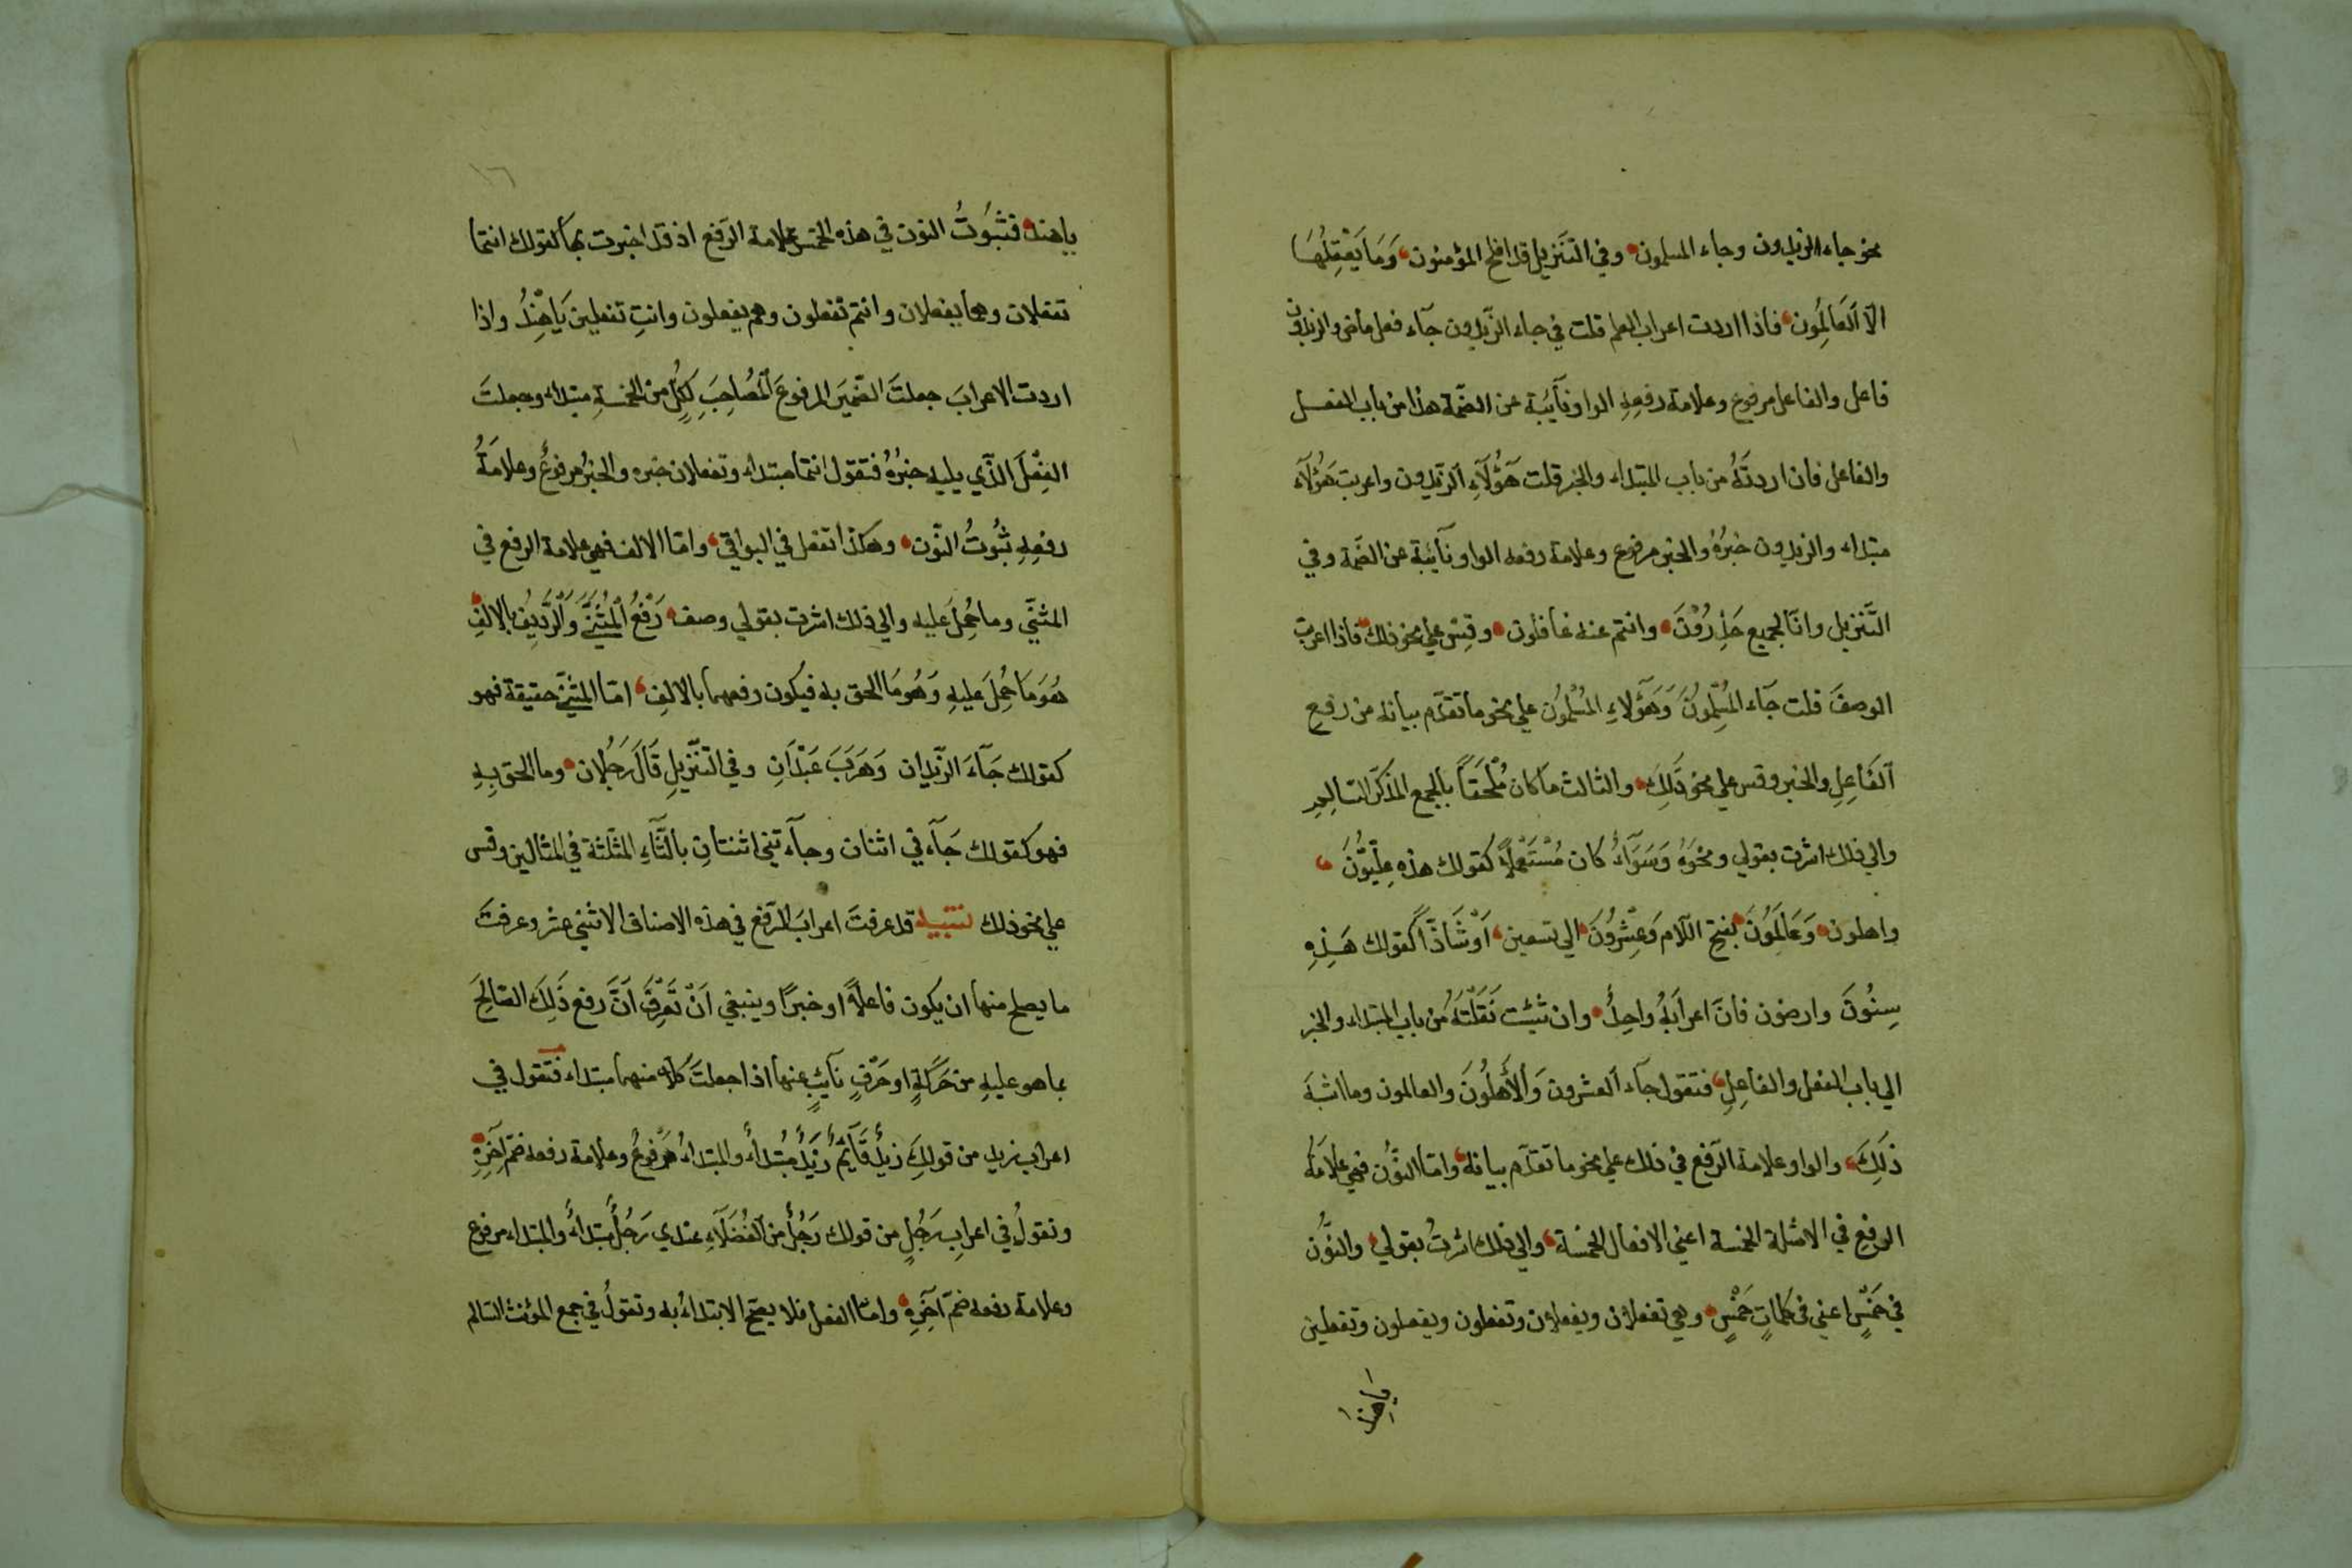 نحو جاء الزيدون وجاء المسلمون وفي التنزيل قد افلح المؤمنون وَمَا يَعْقِلُهَا
الّا اَلعَالِمُون فاذا اردت اعراب العلم قلت في جاء الزّيدون جآء فعل ماض والزيدون
فاعل والفاعل مرفوع وعلامة رفعِهِ الواو نآئبة عن الضمّة هذا من باب الفعل
والفاعل فان اردتَهُ من باب المبتداء والخبر قلت هَؤُلَآءِ اَلزّيدون واعربت هَؤُلَآء
مبتداء والزيدون خبرُهُ والخبر مرفوع وعلامة رفعه الواو نآئبة عن الضمّة وفي
التَّنزيل وانّا لجميع حَذِرُوْنَ وانتم عنه غافلون وقِس علي نحو ذلك فاذا اعربت
الوصفَ قلت جآء المُسْلِمُونَ وَهَؤُلاءِ المُسْلِمُون علي نحو ما تقدّم بيانه من رفع
اَلفَاعِلِ والخبر وقس علي نحو ذَلِكَ والثالث مَا كان مُلْحَقاً بالجمع المذكّر السّالِمِ
والي ذلك اشرت بقولي ونحوَهُ وَسَوَآءُ كان مُسْتَعْمَلاً كقولك هذهِ عِلّيّونَ
واهلون وَعَالَمُونَ بفتح اللّام وَعِشْرُونَ الي تسعين اَوْ شَاذّاً كقولك هَذِهِ
سِنُونَ وارضون فانّ اعرابَهُ واحِدٌ وان شئت نَقَلْتَهُ من باب المبتداء والخبر
الي باب الفعل والفاعِلِ فتقول جآء العشرون وَالأَهلُونَ والعالمون وما اشبهَ
ذَلِكَ والواو علامة الرّفع في ذلك علي نحو ما تقدّم بيانه وامّا النُّون فهي علامَةُ
الرفعِ في الامثلة الخمسة اعني الافعال الخمسَة والي ذلك اشرتُ بقولي والنُّون
في خَمْسٍ اعني في كلماتٍ خَمْسٍ وهي تفعلان ويفعلان وتفعلون ويفعلون وتفعلين
ياهند
١٦
ياهند فثبُوتُ النون في هذه الخمس علامة الرّفع اذ قد اخبرت بها كقولك انتما
تفعلان وهما يفعلان وانتم تفعلون وهم يفعلون وانتِ تفعلين يَاهِنْدُ واذا
اردت الاعرابَ جعلتَ الضّميَر المرفوعَ اَلمُصَاحِبَ لِكُلٍّ من الخمسةِ مبتداء وجعلتَ
الفِعْلَ الّذي يليه خبرُهُ فتقول انتما مبتداء وتفعلان خبره والخبرُ مرفوعٌ وعلامَةُ
رفعِهِ ثبُوتُ النّون وهكذا تفعل في البواقي وامّا الالف فهي علامة الرفع في
المثنّي وما حُمِلَ عليه والي ذلك اشرت بقولي وصف رَفْعُ اَلمُثَنَّي وَالرَّدِيْفِ بالالِفِ
هُوَ مَا حُمِلَ عليهِ وَهُوَمَا الحق به فيكون رفعهما بالالفِ امّا المثنّي حقيقة فهو
كقولك جَآءَ الزّيدان وَهَرَبَ عَبْدَانِ وفي التنّزيلِ قَالَ رَجُلان وما الحق بِهِ
فهو كقولك جَآء ني اثنان وجآء تني اثنتانِ بالثّآءِ المثلّثة في المثالين وقس
علي نحو ذلك تنبيه قد عرفتَ اعرابَ الرّفع في هذه الاصناف الاثني عشر وعرفتَ
ما يصلح منها ان يكون فاعلاً او خبراً وينبغي اَنْ تَعْرِفَ اَنَّ رفع ذَلِكَ الصّالِحَ
بما هو عليهِ من حَرَكَةٍ او حَرْفٍ نآئبٍ عنها اذا جعلتَ كلّا منهما مبتداء فتقول في
اعراب زيد من قولكَ زيدٌ قَآئمٌ زيدٌ مُبْتداءٌ والمبتداءُ مَرْفوعٌ وعلامة رفعه ضمّ اَخِرِهِ
وتقولُ في اعرابِ رَجُلٍ من قولك رَجُلٌ من اَلفُضَلَآءِ عندي رَجُلٌ مُبْتداءٌ والمبتداء مرفوع
وعلامة رفعه ضمّ اَخِرِهِ وامّا الفعل فلا يصحّ الابتداءُ به وتقولُ في جمع المؤنث السّالم